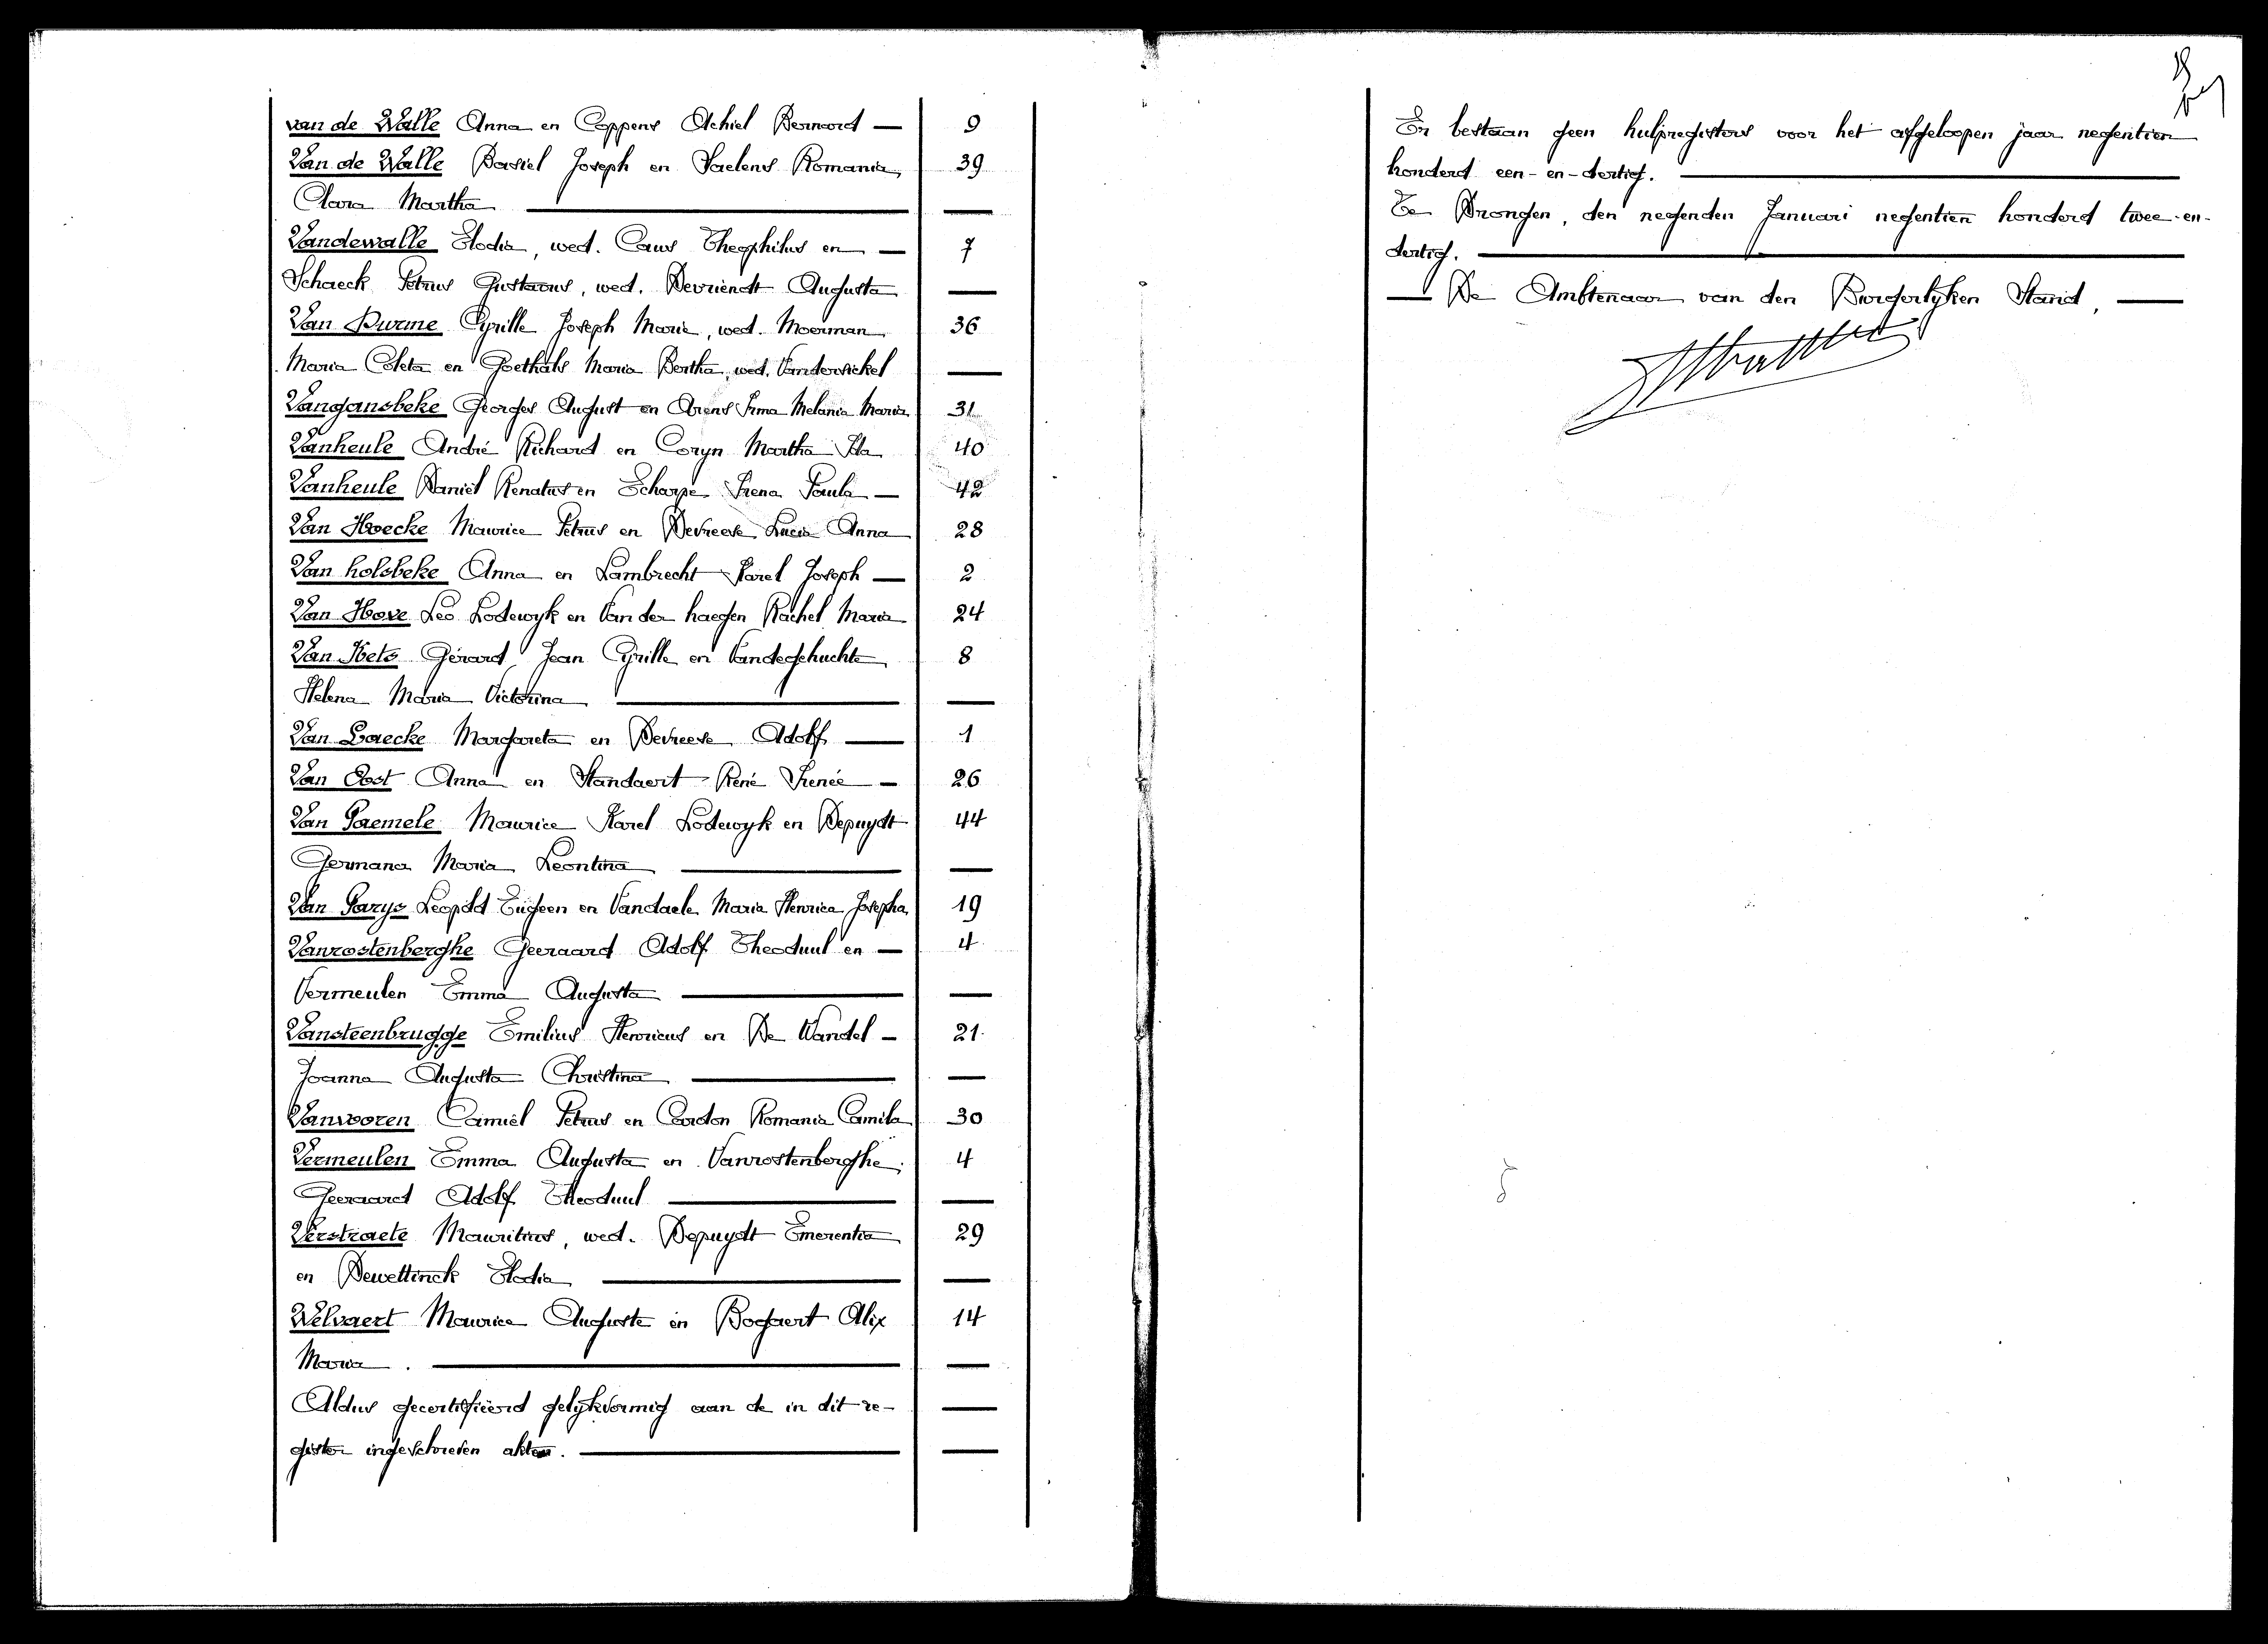 van de Walle Anna en Coppens Achiel Bernard — 9
Van de Walle Basiel Joseph en Saelens Romania 39
Clara Martha —
Vandewalle Elodia, wed. Caus Theophilus en — 7
Schaeck Petrus Gustavus, wed. Devriendt Augusta —
Van Durme Cyrille Joseph Marie, wed. Moerman 36
Maria Coleta en Goethals Maria Bertha, wed. Vandersickel —
Vangansbeke Georges August en Arens Irma Melania Maria 31
Vanheule André Richard en Coryn Martha Ida 40
Vanheule Daniel Renatus en Scharpe Irena Paula — 42
Van Hoecke Maurice Petrus en Devreese Lucia Anna 28
Van holsbeke Anna en Lambrecht Karel Joseph — 2
Van Hove Leo Lodewyk en Van der haegen Rachel Maria 24
Van Hets Gérard Jean Cyrille en Vandeghuchte 8
Helena Maria Victorina —
Van Laecke Margareta en Devreese Adolf — 1
Van Oost Anna en Standaert René Irenée — 26
Van Paemele Maurice Karel Lodewyk en Depuydt 44
Germana Maria Leontina —
Van Parys Leopold Eugeen en Vandaele Maria Henrica Josepha 19
Vanrostenberghe Geeraard Adolf Theoduul en — 4
Vermeulen Emma Augusta —
Vansteenbrugge Emilius Henricus en De Wandel — 21
Joanna Augusta Christina —
Vanvooren Camiel Petrus en Cardon Romania Camila 30
Vermeulen Emma Augusta en Vanrostenberghe 4
Geeraard Adolf Theoduul —
Verstraete Mauritius, wed. Depuydt Emerentia 29
en Dewettinck Elodia —
Welvaert Maurice Auguste en Bogaert Alix 14
Maria. —
Aldus gecertifiëerd gelykvormig aan de in dit re- —
gister ingeschreven akten. —
Er bestaan geen hulpregisters voor het afgeloopen jaar negentien
honderd een-en-dertig. —
Te Drongen, den negenden Januari negentien honderd twee-en-
dertig. —
— De Ambtenaar van den Burgerlyken Stand, —